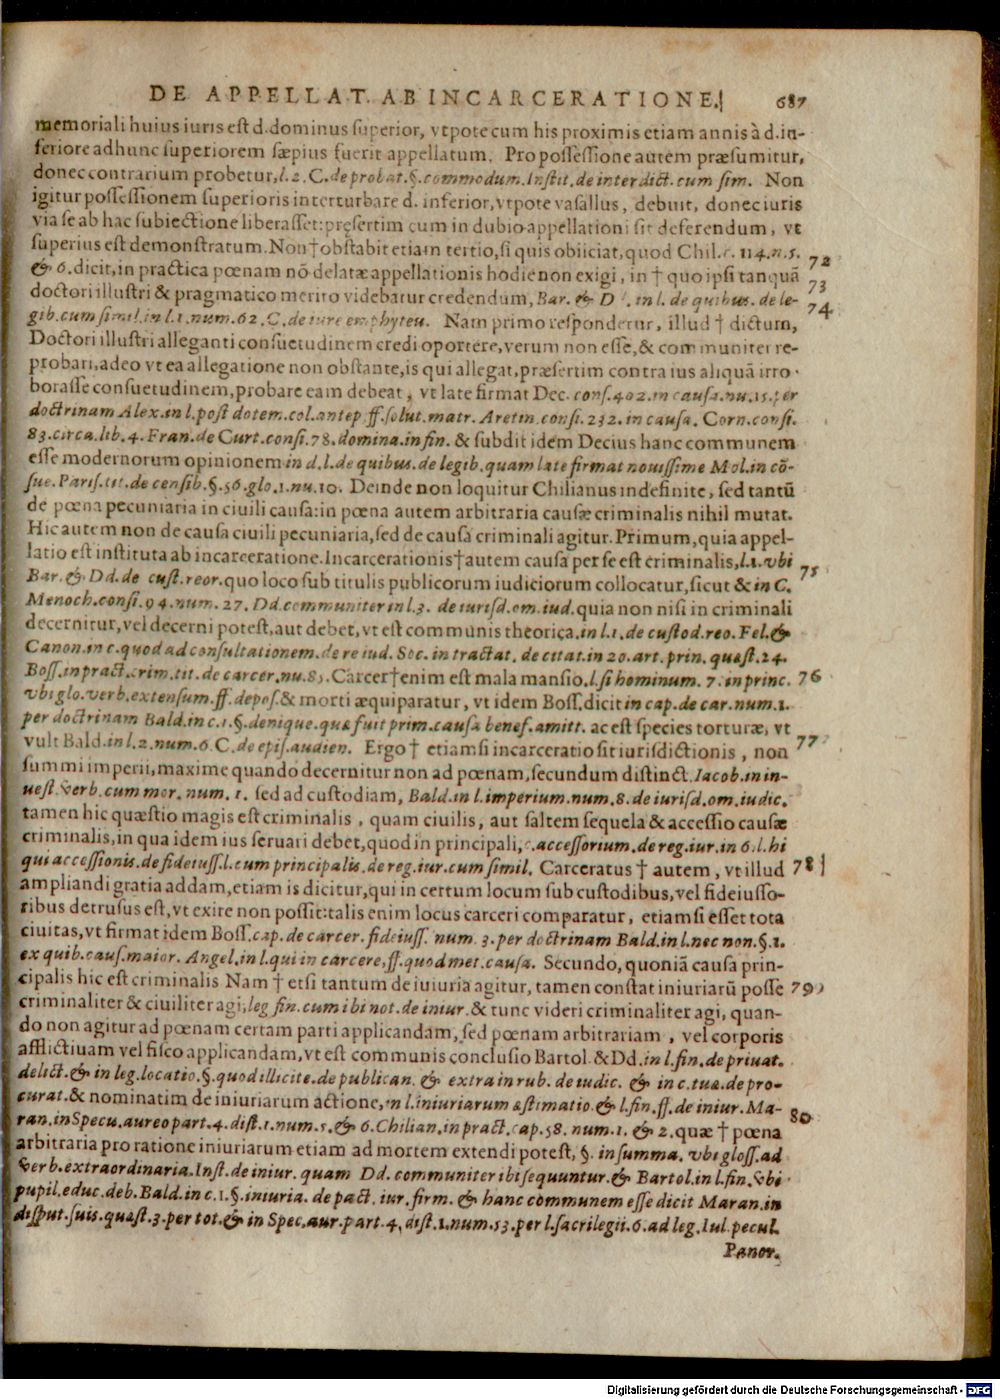 DE APPELLAT. AB INCARCERATIONE. 687
memoriali huius iuris est d. dominus superior, vtpote cum his proximis etiam annis à d. in-
feriore ad hunc superiorem sæpius fuerit appellatum. Pro possessione autem præsumitur,
donec contrarium probetur, l. 2. C. de probat. §. commodum. Instit. de interdict. cum sim. Non
igitur possessionem superioris interturbare d. inferior, vtpote vasallus, debuit, donec iuris
via se ab hac subiectione liberasset: pręsertim cum in dubio appellationi sit deferendum, vt
superius est demonstratum. Non † obstabit etiam tertio, si quis obiiciat, quod Chil. c. 114. n. 5. 72
& 6. dicit, in practica pœnam nō delatæ appellationis hodie non exigi, in † quo ipsi tanquā 73
doctori illustri & pragmatico merito videbatur credendum, Bar. & D in l. de quibus. de le- 74
gib. cum simil. in l. 1. num. 62. C. de iure emphyteu. Nam primo respondetur, illud † dictum,
Doctori illustri alleganti consuetudinem credi oportere, verum non esse, & communiter re-
probari, adeo vt ea allegatione non obstante, is qui allegat, præsertim contra ius aliquā irro-
borasse consuetudinem, probare eam debeat, vt late firmat Dec. cons. 402. in causa. nu. 15. per
doctrinam Alex. in l. post dotem. col. antep. ff. solut. matr. Aretin. consi. 232. in causa. Corn. consi.
83. circa. lib. 4. Fran. de Curt. consi. 78. domina. in fin. & subdit idem Decius hanc communem
esse modernorum opinionem in d. l. de quibus. de legib. quam late firmat nouissime Mol. in cō-
sue. Paris. tit. de censib. §. 56. glo. 1. nu. 10. Deinde non loquitur Chilianus indefinite, sed tantū
de pœna pecuniaria in ciuili causa: in pœna autem arbitraria causæ criminalis nihil mutat.
Hic autem non de causa ciuili pecuniaria, sed de causa criminali agitur. Primum, quia appel-
latio est instituta ab incarceratione. Incarcerationis † autem causa per se est criminalis, l. 1. vbi 75
Bar. & Dd. de cust. reor. quo loco sub titulis publicorum iudiciorum collocatur, sicut & in C.
Menoch. consi. 94. num. 27. Dd. communiter in l. 3. de iurisd. om. iud. quia non nisi in criminali
decernitur, vel decerni potest, aut debet, vt est communis theorica. in l. 1. de custod. reo. Fel. &
Canon. in c. quod ad consultationem. de re iud. Soc. in tractat. de citat. in 20. art. prin. quæst. 24.
Boss. in pract. crim. tit. de carcer. nu. 85. Carcer † enim est mala mansio, l. si hominum. 7. in princ. 76
vbi glo. verb. extensum. ff. depos. & morti æquiparatur, vt idem Boss. dicit in cap. de car. num. 1.
per doctrinam Bald. in c. 1. §. denique. quæ fuit prim. causa benef. amitt. ac est species torturæ, vt
vult Bald. in l. 2. num. 6. C. de epis. audien. Ergo † etiamsi incarceratio sit iurisdictionis, non 77
summi imperii, maxime quando decernitur non ad pœnam, secundum distinct. Iacob. in in-
uest. verb. cum mer. num. 1. sed ad custodiam, Bald. in l. imperium. num. 8. de iurisd. om. iudic.
tamen hic quæstio magis est criminalis, quam ciuilis, aut saltem sequela & accessio causæ
criminalis, in qua idem ius seruari debet, quod in principali, c. accessorium. de reg. iur. in 6. l. hi
qui accessionis. de fideiuss. l. cum principalis. de reg. iur. cum simil. Carceratus † autem, vt illud 78
ampliandi gratia addam, etiam is dicitur, qui in certum locum sub custodibus, vel fideiusso-
ribus detrusus est, vt exire non possit: talis enim locus carceri comparatur, etiamsi esset tota
ciuitas, vt firmat idem Boss. cap. de carcer. fideiuss. num. 3. per doctrinam Bald. in l. nec non. §. 1.
ex quib. caus. maior. Angel. in l. qui in carcere, ff. quod met. causa. Secundo, quoniā causa prin-
cipalis hic est criminalis Nam † etsi tantum de iuiuria agitur, tamen constat iniuriarū posse 79
criminaliter & ciuiliter agi, leg fin. cum ibi not. de iniur. & tunc videri criminaliter agi, quan-
do non agitur ad pœnam certam parti applicandam, sed pœnam arbitrariam, vel corporis
afflictiuam vel fisco applicandam, vt est communis conclusio Bartol. & Dd. in l. fin. de priuat.
delict. & in leg. locatio. §. quod illicite. de publican. & extra in rub. de iudic. & in c. tua. de pro-
curat. & nominatim de iniuriarum actione, in l. iniuriarum æstimatio. & l. fin. ff. de iniur. Ma-
ran. in Specu. aureo part. 4. dist. 1. num. 5. & 6. Chilian. in pract. cap. 58. num. 1. & 2. quæ † pœna 80
arbitraria pro ratione iniuriarum etiam ad mortem extendi potest, §. in summa. vbi gloss. ad
verb. extraordinaria. Inst. de iniur. quam Dd. communiter ibi sequuntur. & Bartol. in l. fin. vbi
pupil. educ. deb. Bald. in c. 1. §. iniuria. de pact. iur. firm. & hanc communem esse dicit Maran. in
disput. suis. quæst. 3. per tot. & in Spec. aur. part. 4. dist. 1. num. 53. per l. sacrilegii. 6. ad leg. Iul. pecul.
Panor.
Digitalisierung gefördert durch die Deutsche Forschungsgemeinschaft - DFG